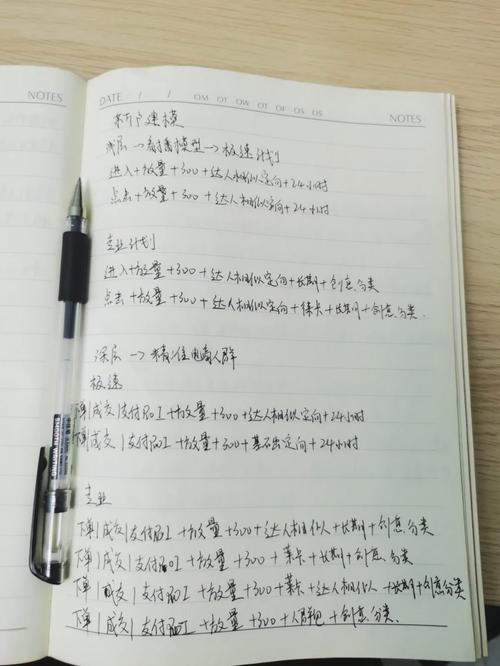 NOTES
DATE / / OM OT OW OT OF OS OS
NOTES
新户建模
浅层→耐看模型→极速计划
进入+放量+300+达人相似定向+24小时
点击+放量+300+达人相似定向+24小时
专业计划
进入+放量+300+达人相似定向+长期+创意分类
点击+放量+300+达人相似定向+徕卡+长期+创意分类.
深层→精准电商人群
极速
下单|成交|支付ROI+放量+300+达人相似定向+24小时
下单|成交|支付ROI+放量+300+基础定向+24小时
专业
下单|成交|支付ROI+放量+300+达人相似人+长期+创意分类
下单|成交|支付ROI+放量+300+莱卡+长期+创意分类
下单|成交|支付ROI+放量+300+莱卡+达人相似人+长期+创意分类
下单|成交|支付ROI+放量+300+人群包+创意分类.